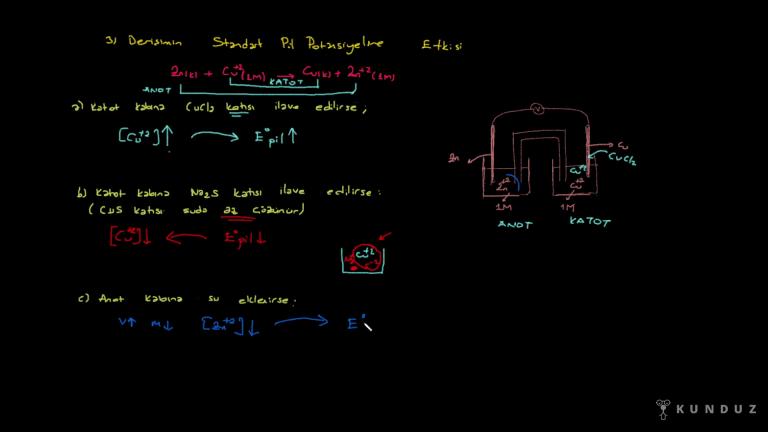 3) Derişimin Standart Pil Potansiyeline Etkisi
Zn(k) + Cu+2(1M) → Cu(k) + Zn+2(1M)
KATOT
ANOT
a) Katot kabına CuCl2 katısı ilave edilirse;
[Cu+2]↑ → E°pil↑
b) Katot kabına Na2S katısı ilave edilirse:
(CuS katısı suda az çözünür)
[Cu+2]↓ ← E°pil↓
Cu+2
c) Anot kabına su eklenirse:
V↑ M↓ [Zn+2]↓ → E°
V
Zn
Cu
CuCl2
Cu+2
Zn+2
Cu+2
1M
1M
ANOT
KATOT
KUNDUZ